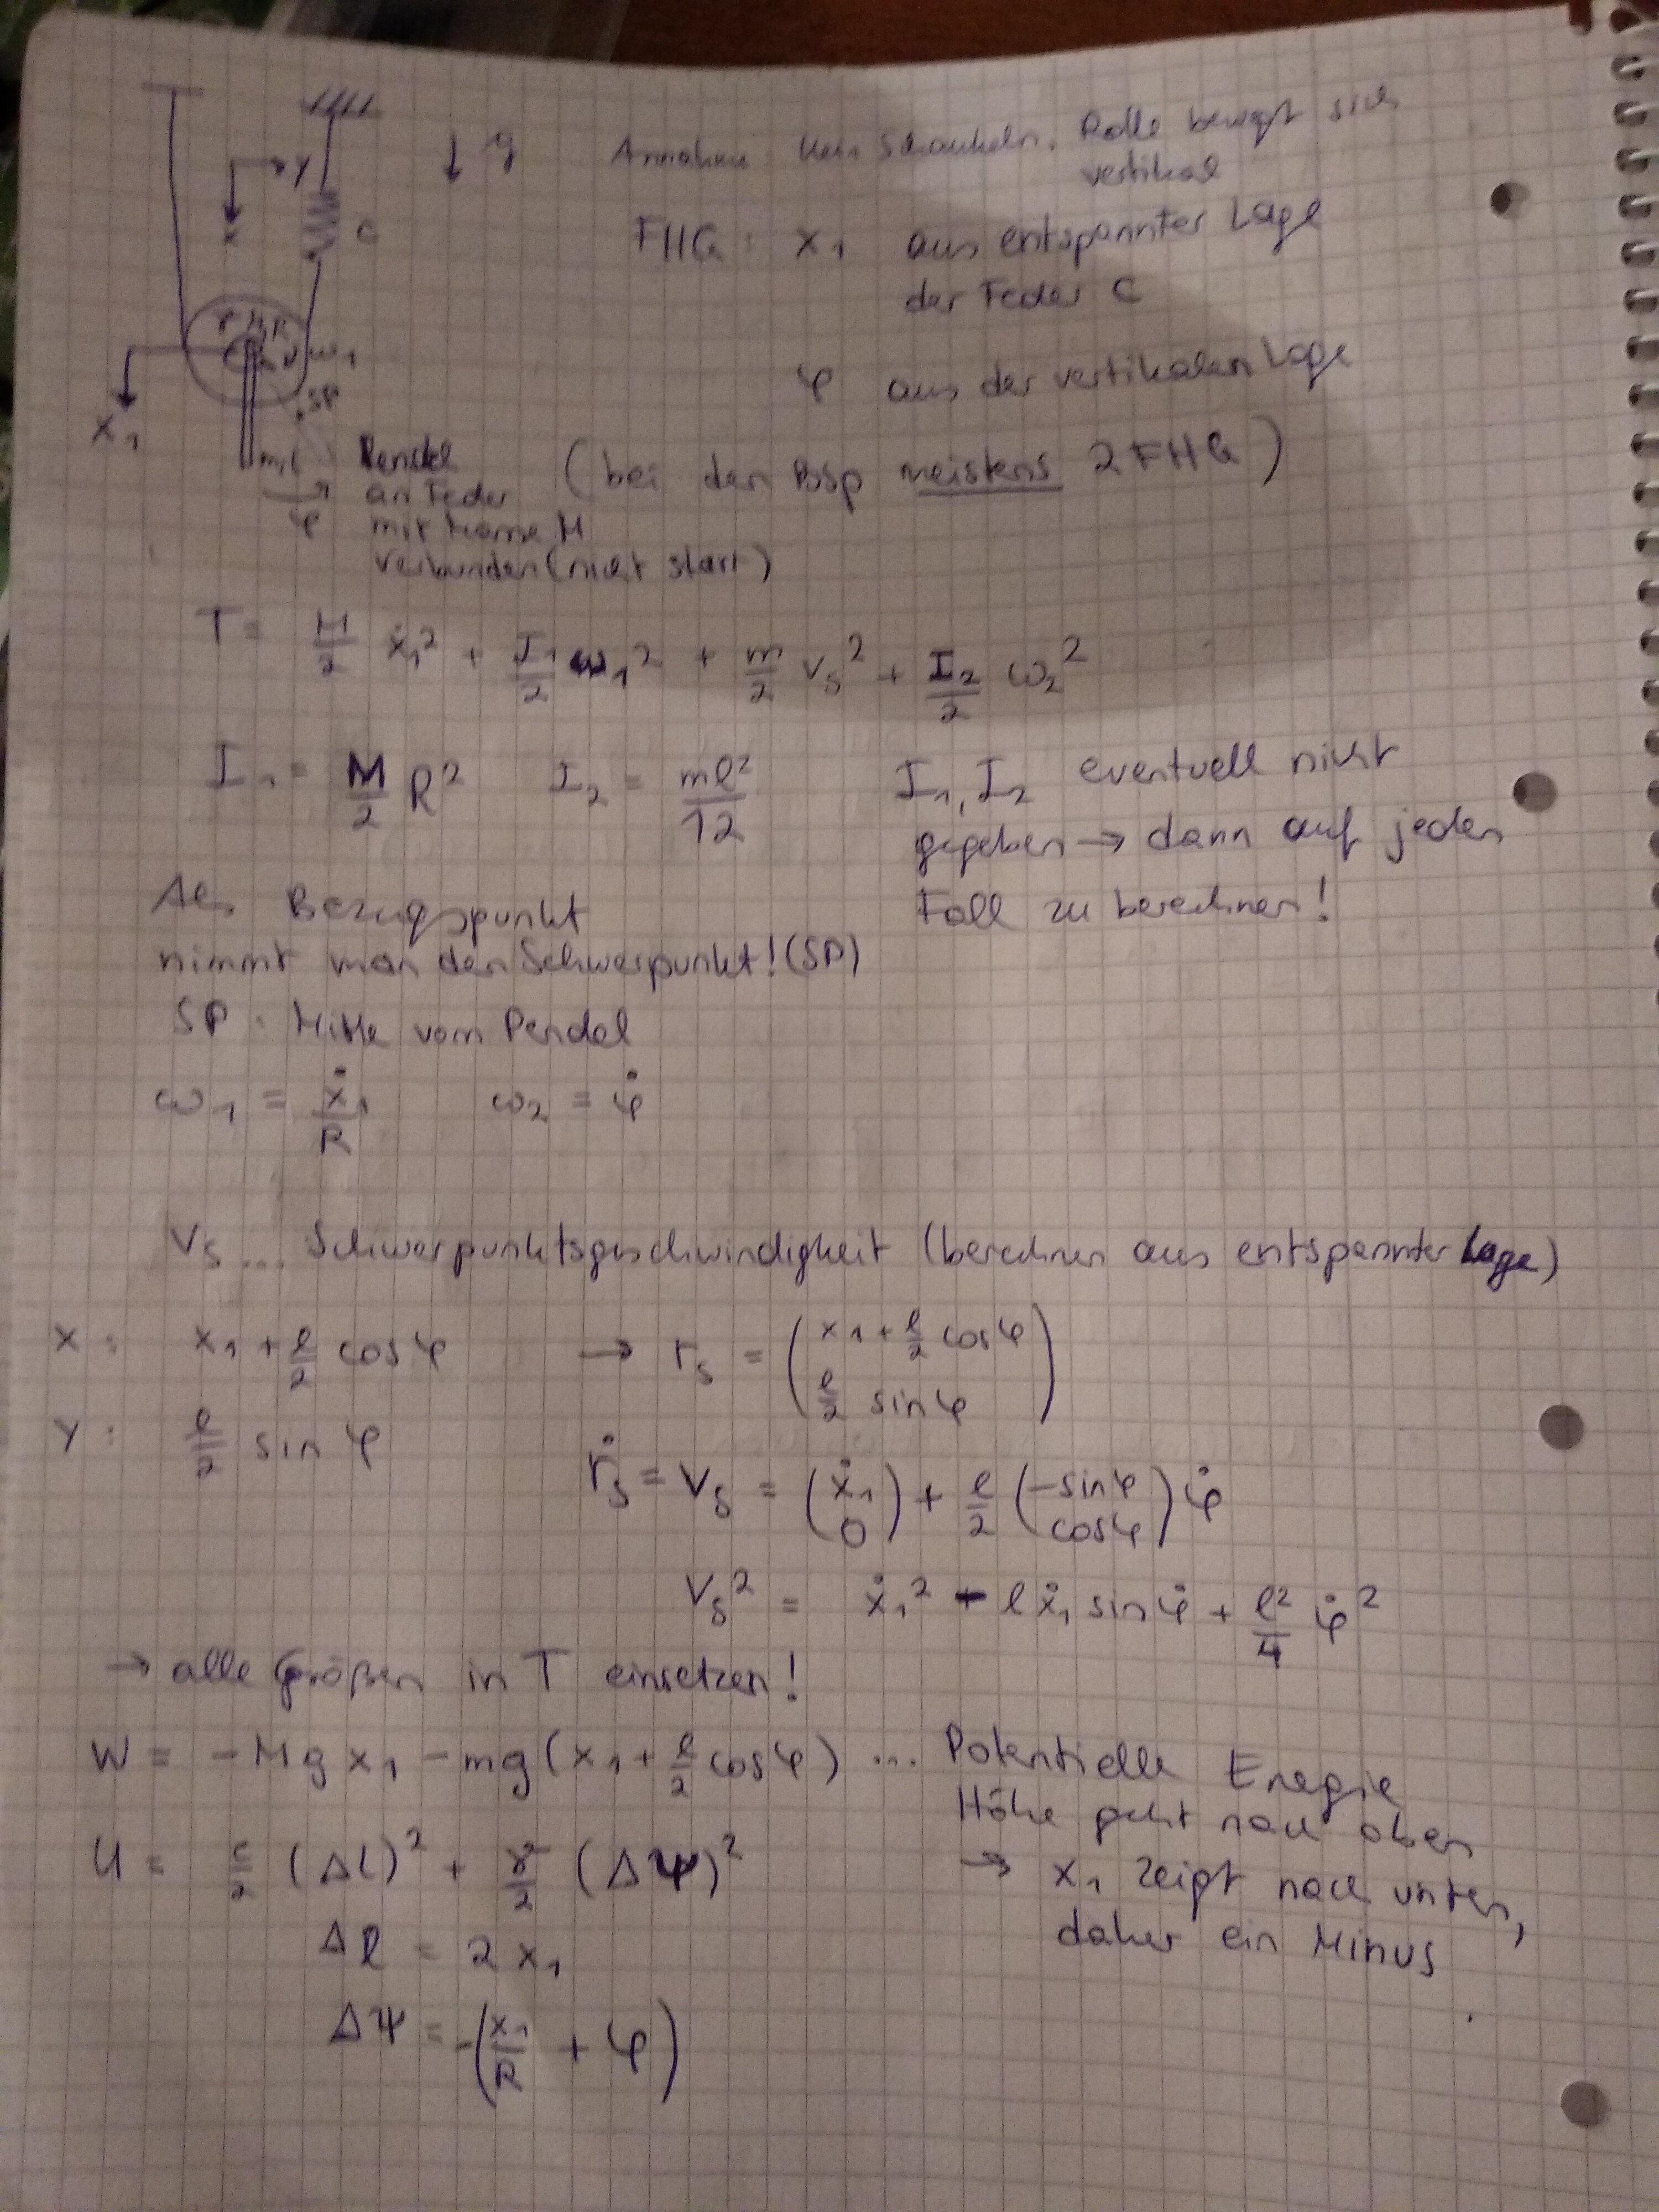 ↓ g
Annahme: kein Schaukeln. Rolle bewegt sich
vertikal
y
x
c
FHG: x₁ aus entspannter Lage
der Feder C
M, R
ω₁
SP
x₁
φ aus der vertikalen Lage
m, l
φ
Pendel
an Feder
mit Masse M
verbunden (nicht starr)
(bei den Bsp meistens 2 FHG)
T = M/2 ẋ₁² + I₁/2 ω₁² + m/2 v_s² + I₂/2 ω₂²
I₁ = M/2 R² I₂ = ml²/12
I₁, I₂ eventuell nicht
gegeben → dann auf jeden
Fall zu berechnen!
Als Bezugspunkt
nimmt man den Schwerpunkt! (SP)
SP: Mitte vom Pendel
ω₁ = ẋ₁/R ω₂ = φ̇
v_s ... Schwerpunktsgeschwindigkeit (berechnen aus entspannter Lage)
x: x₁ + l/2 cos φ → r_s = (x₁ + l/2 cos φ, l/2 sin φ)
y: l/2 sin φ
ṙ_s = v_s = (ẋ₁, 0) + l/2 (-sin φ, cos φ) φ̇
v_s² = ẋ₁² - l ẋ₁ sin φ̇ + l²/4 φ̇²
→ alle Größen in T einsetzen!
W = -Mg x₁ - mg (x₁ + l/2 cos φ) ... Potentielle Energie
Höhe geht nach oben
→ x₁ zeigt nach unten,
daher ein Minus
U = c/2 (Δl)² + γ/2 (ΔΨ)²
Δl = 2x₁
ΔΨ = -(x₁/R + φ)